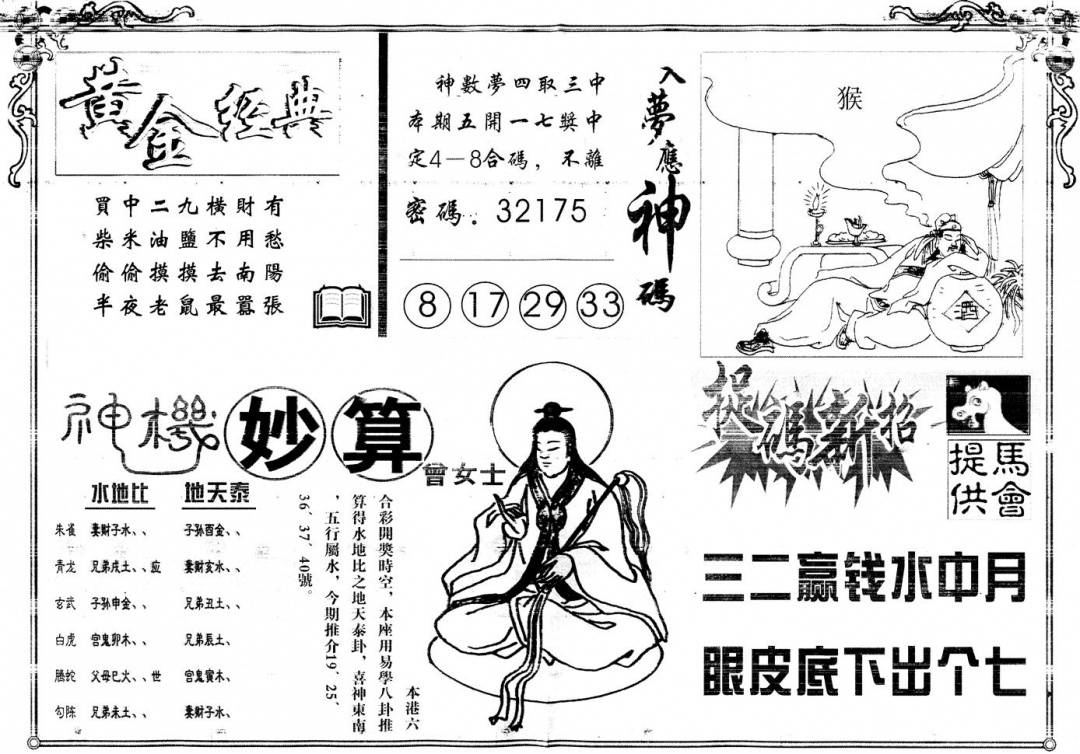 黄金经典
買中二九横財有
柴米油鹽不用愁
偷偷摸摸去南陽
半夜老鼠最囂張
神數夢四取三中
本期五開一七獎中
定4—8合碼，不離
密碼．32175
8 17 29 33
入夢應神碼
猴
酒
神機妙算
曾女士
水地比 地天泰
朱雀 妻财子水、、 子孙酉金、、
青龙 兄弟戌土、、应 妻财亥水、、
玄武 子孙申金、、 兄弟丑土、、
白虎 宫鬼卯木、、 兄弟辰土、
腾蛇 父母巳火、、世 宫鬼寅木、
勾陈 兄弟未土、、 妻财子水、
本港六
合彩開獎時空，本座用易學八卦推
算得水地比之地天泰卦，喜神東南
，五行屬水，今期推介19、25、
36、37、40號。
捉碼新招
馬會
提供
三二赢钱水中月
眼皮底下出个七